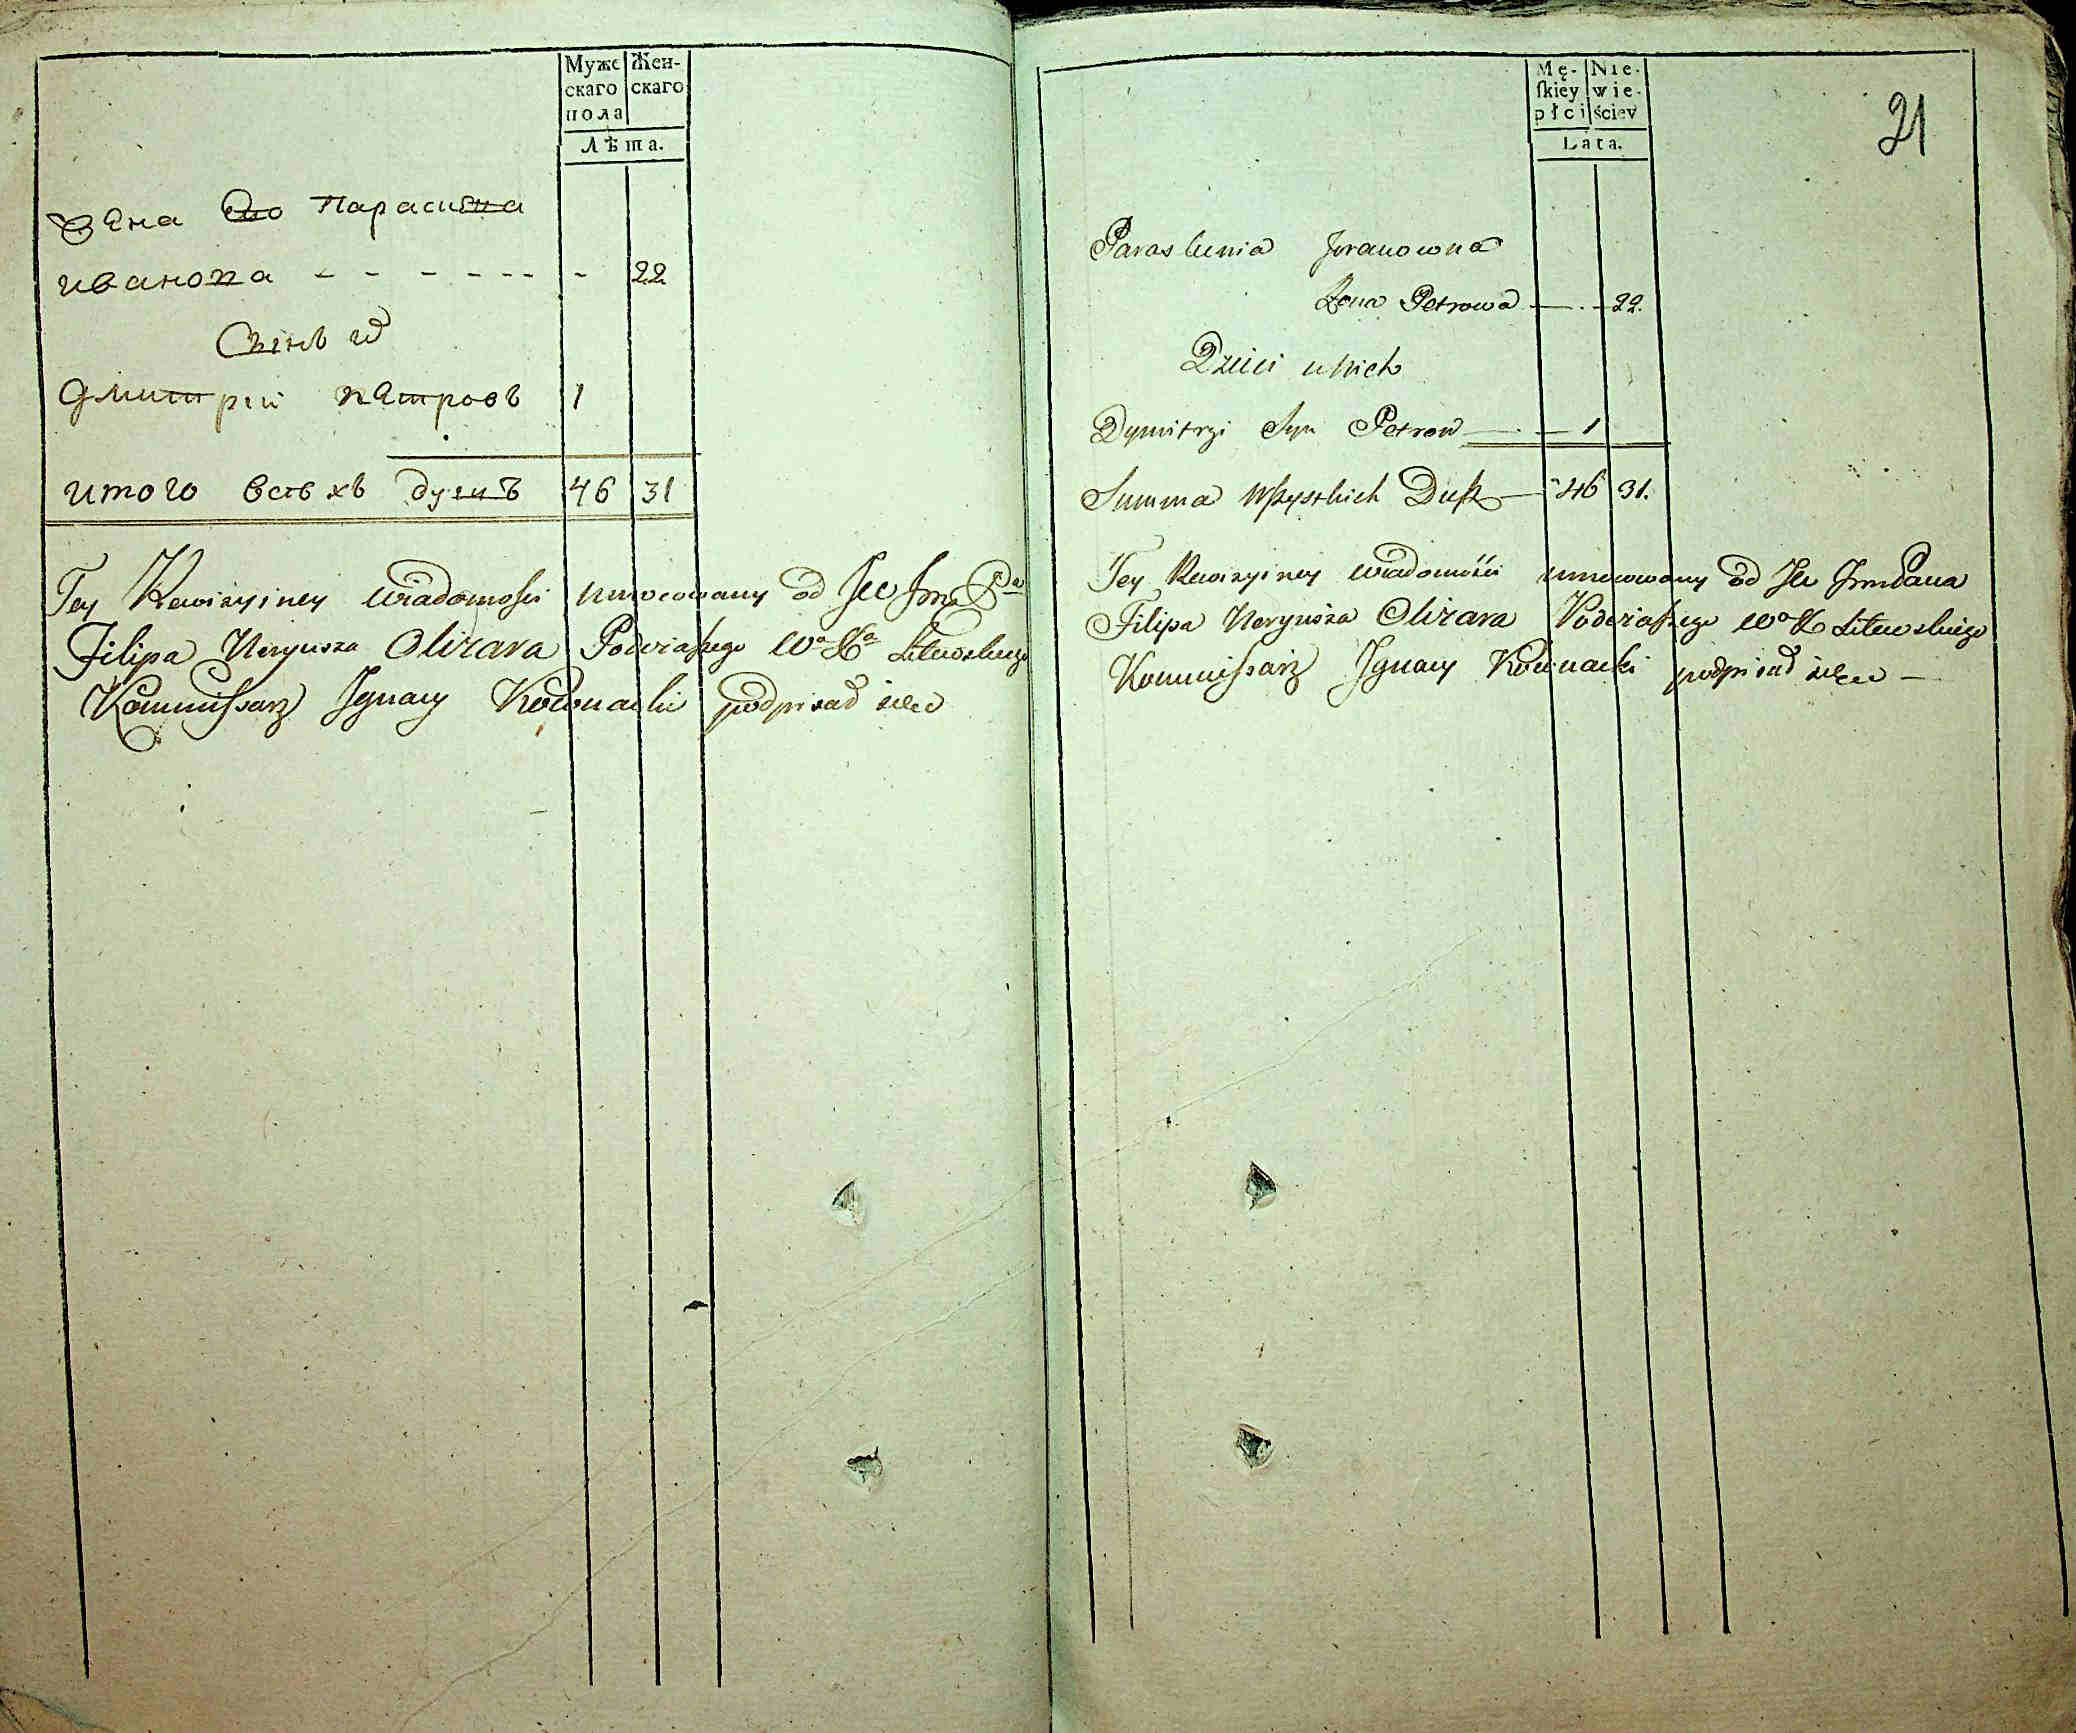 Муже Жен-
скаго скаго
пола
Лѣта.
Жена Его Параскεвиа
ивановa - - - - - - - 22
Сынъ и҆хъ
Дмитрій петровъ 1
итого всѣхъ душъ 46 31
Tey Rewizyiney wiadomości umocowany od JW Jmc Pa
Filipa Neryusza Olizara Podczaszego Wo Xa Litewskiego
Kommissarz Ignacy podpisał się
Mę- Nie-
skiey wie-
płci ściey
Lata.
21
Paraskiewia Iwanowna
Zona Petrowa — . — 22.
Dzieci u nich
Dymitrzy Syn Petrow — . — 1
Summa wszystkich Dusz — 46 31.
Tey Rewizyiney wiadomości umocowany od JW Jmc Pana
Filipa Neryusza Olizara Podczaszego Wo X Litewskiego
Kommissarz Ignacy podpisał się —